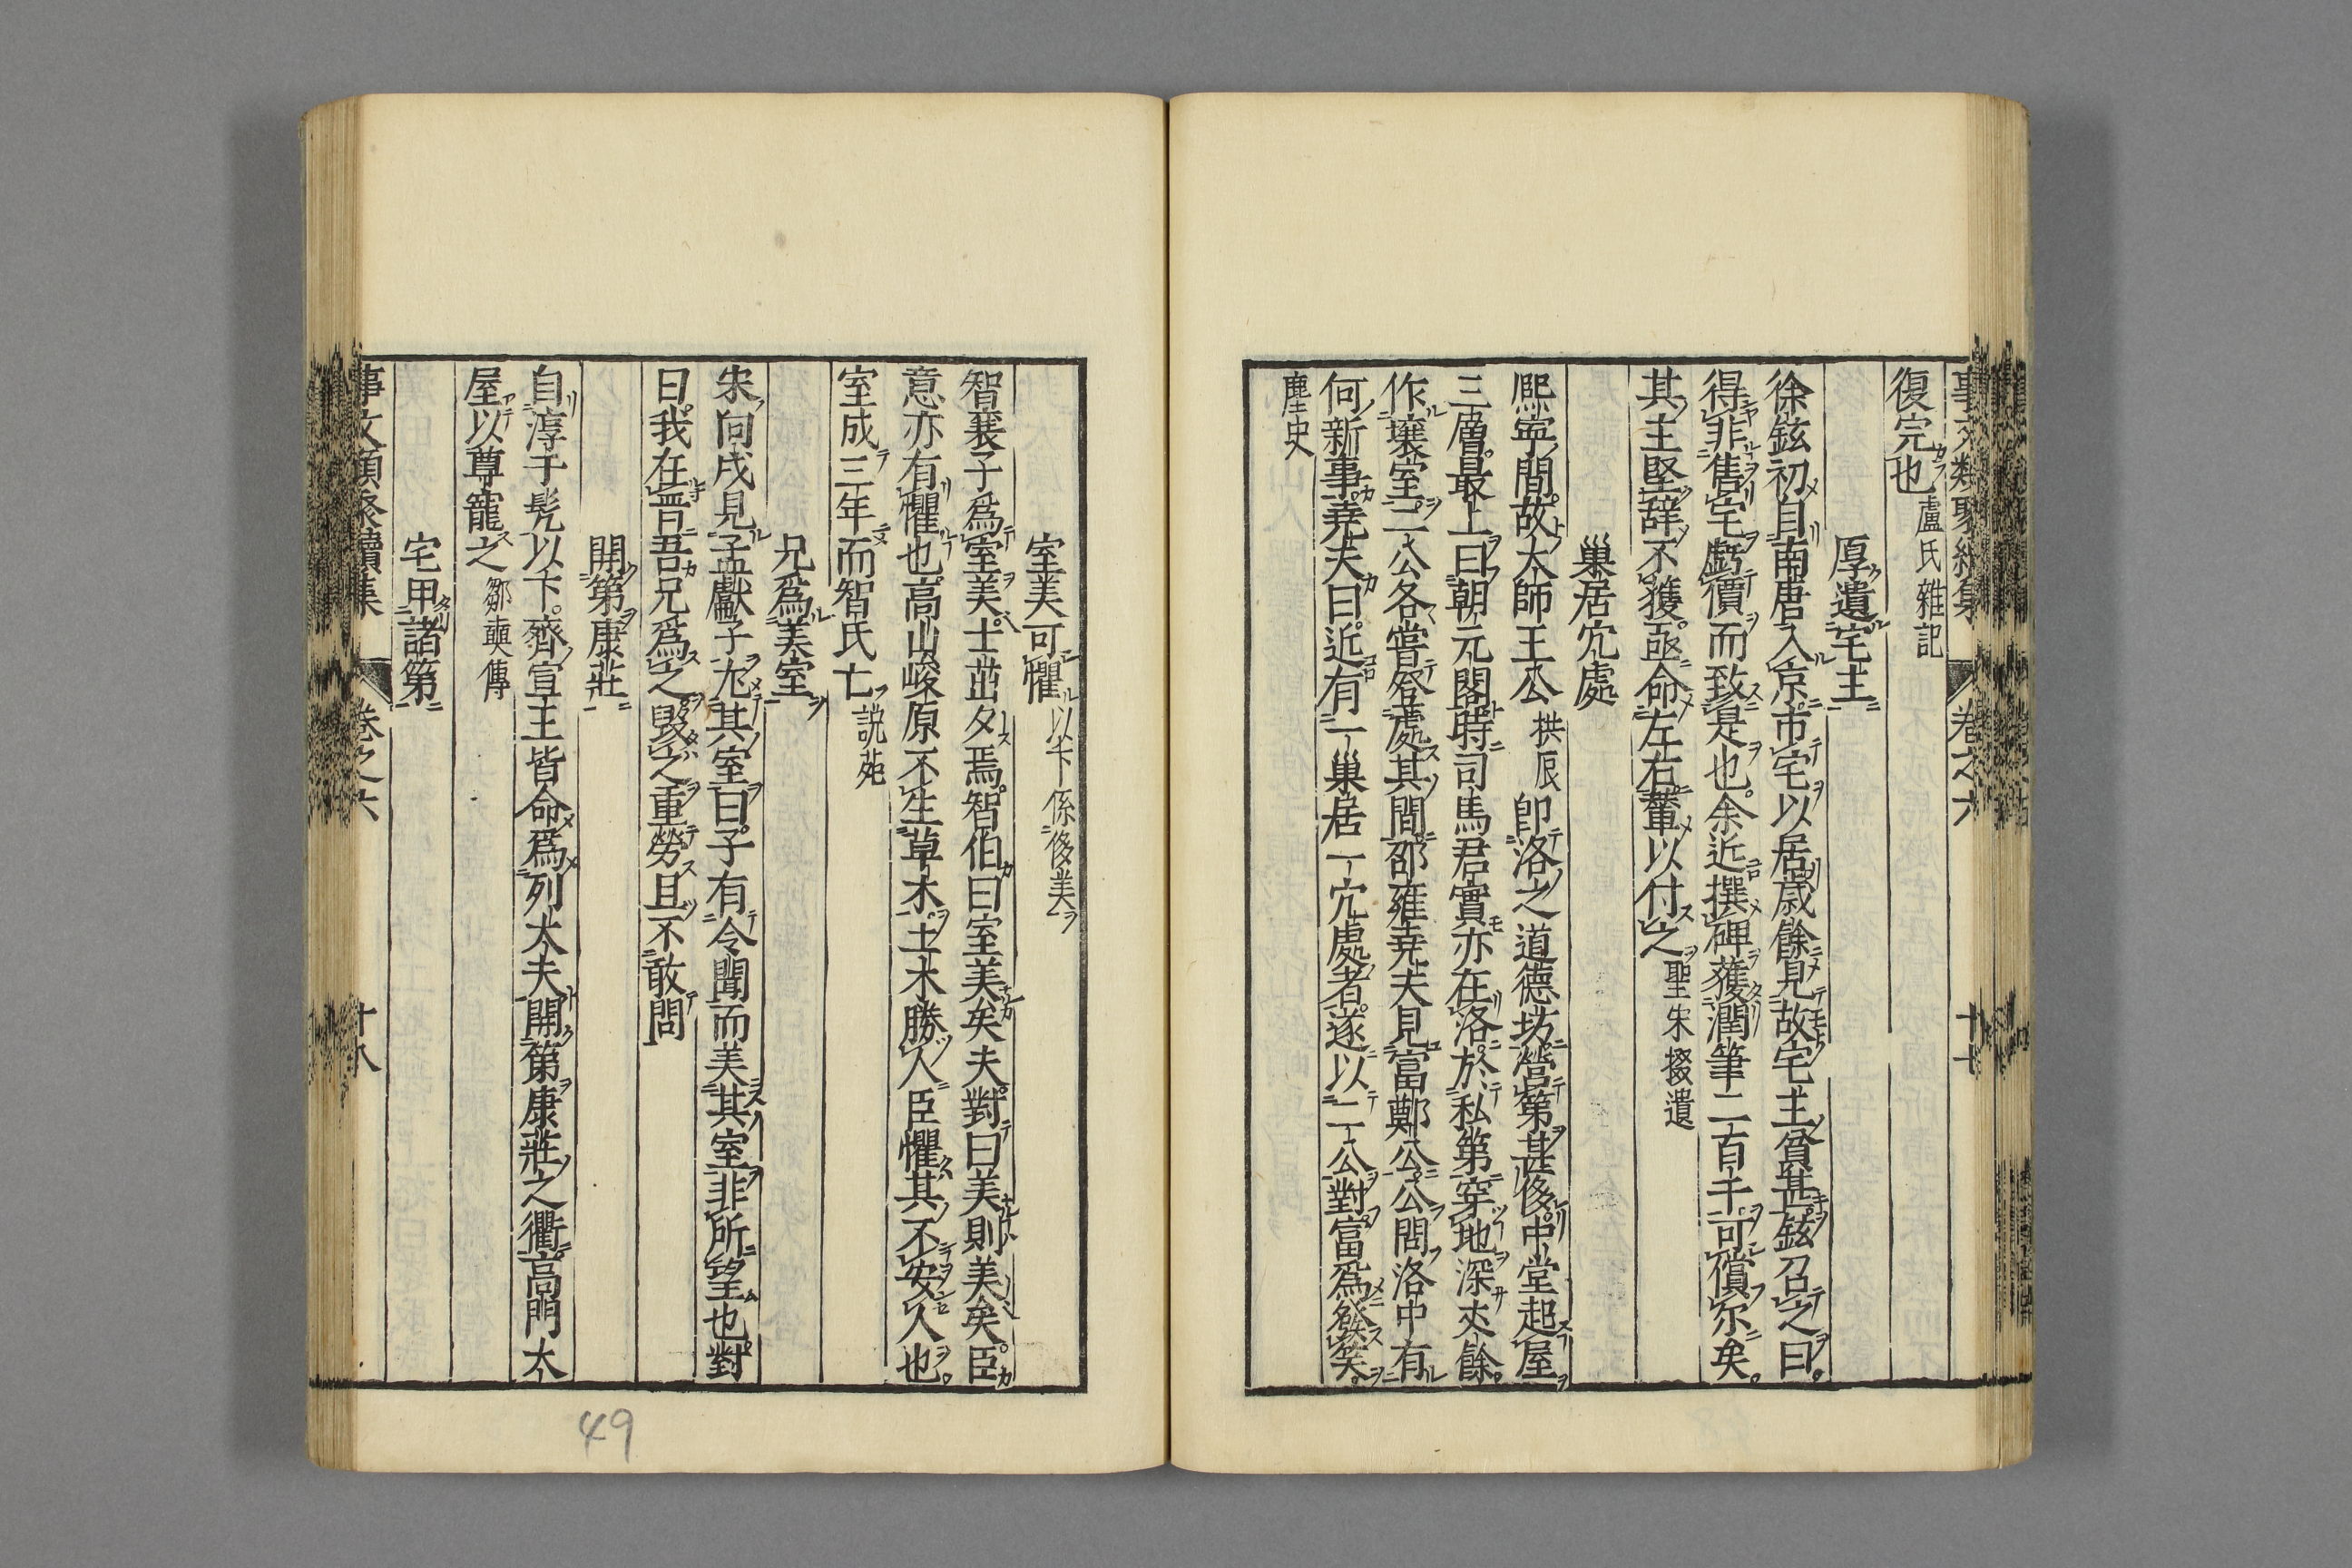 事文類聚續集　卷之六　十七
復完也盧氏雜記
厚遺宅主
徐鉉初自南唐入京市宅以居歲餘見故宅主貧甚鉉召之曰
得非售宅虧價而致是也余近撰碑獲潤筆二百千可償尓矣
其主堅辞不獲亟命左右輦以付之聖朱掇遺
巢居穴處
熈寕間故太師王公拱辰卽洛之道德坊營第甚侈中堂起屋
三層最上曰朝元閣時司馬君實亦在洛於私第穿地深丈餘
作壤室二公各嘗登處其間邵雍尭夫見富鄭公公問洛中有
何新事尭夫曰近有一巢居一穴處者遂以二公對富爲發笑
麈史
室美可懼以下係侈美
智襄子爲室美士茁夕焉智伯曰室美矣夫對曰美則美矣臣
意亦有懼也高山峻原不生草木土木勝人臣懼其不安人也
室成三年而智氏亡説苑
兄爲美室
宋向戌見孟獻子尤其室曰子有令聞而美其室非所望也對
曰我在晋吾兄爲之毀之重勞且不敢問
開第康莊
自淳于髡以下齊宣王皆命爲列大夫開第康莊之衢高門大
屋以尊寵之鄒奭傳
宅甲諸第
事文類聚續集　卷之六　十八
49